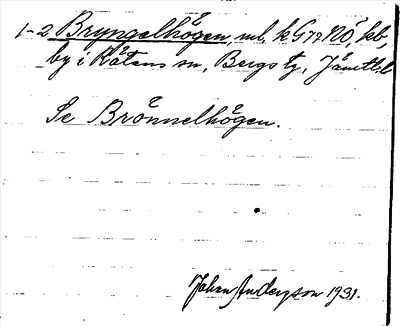 1-2 Bryngelhögen, ml, k G 77 NÖ, kb,
by i Rätans sn, Bergs tg, Jämtl. l
Se Brönnelhögen.
Johan Anderzson 1931.